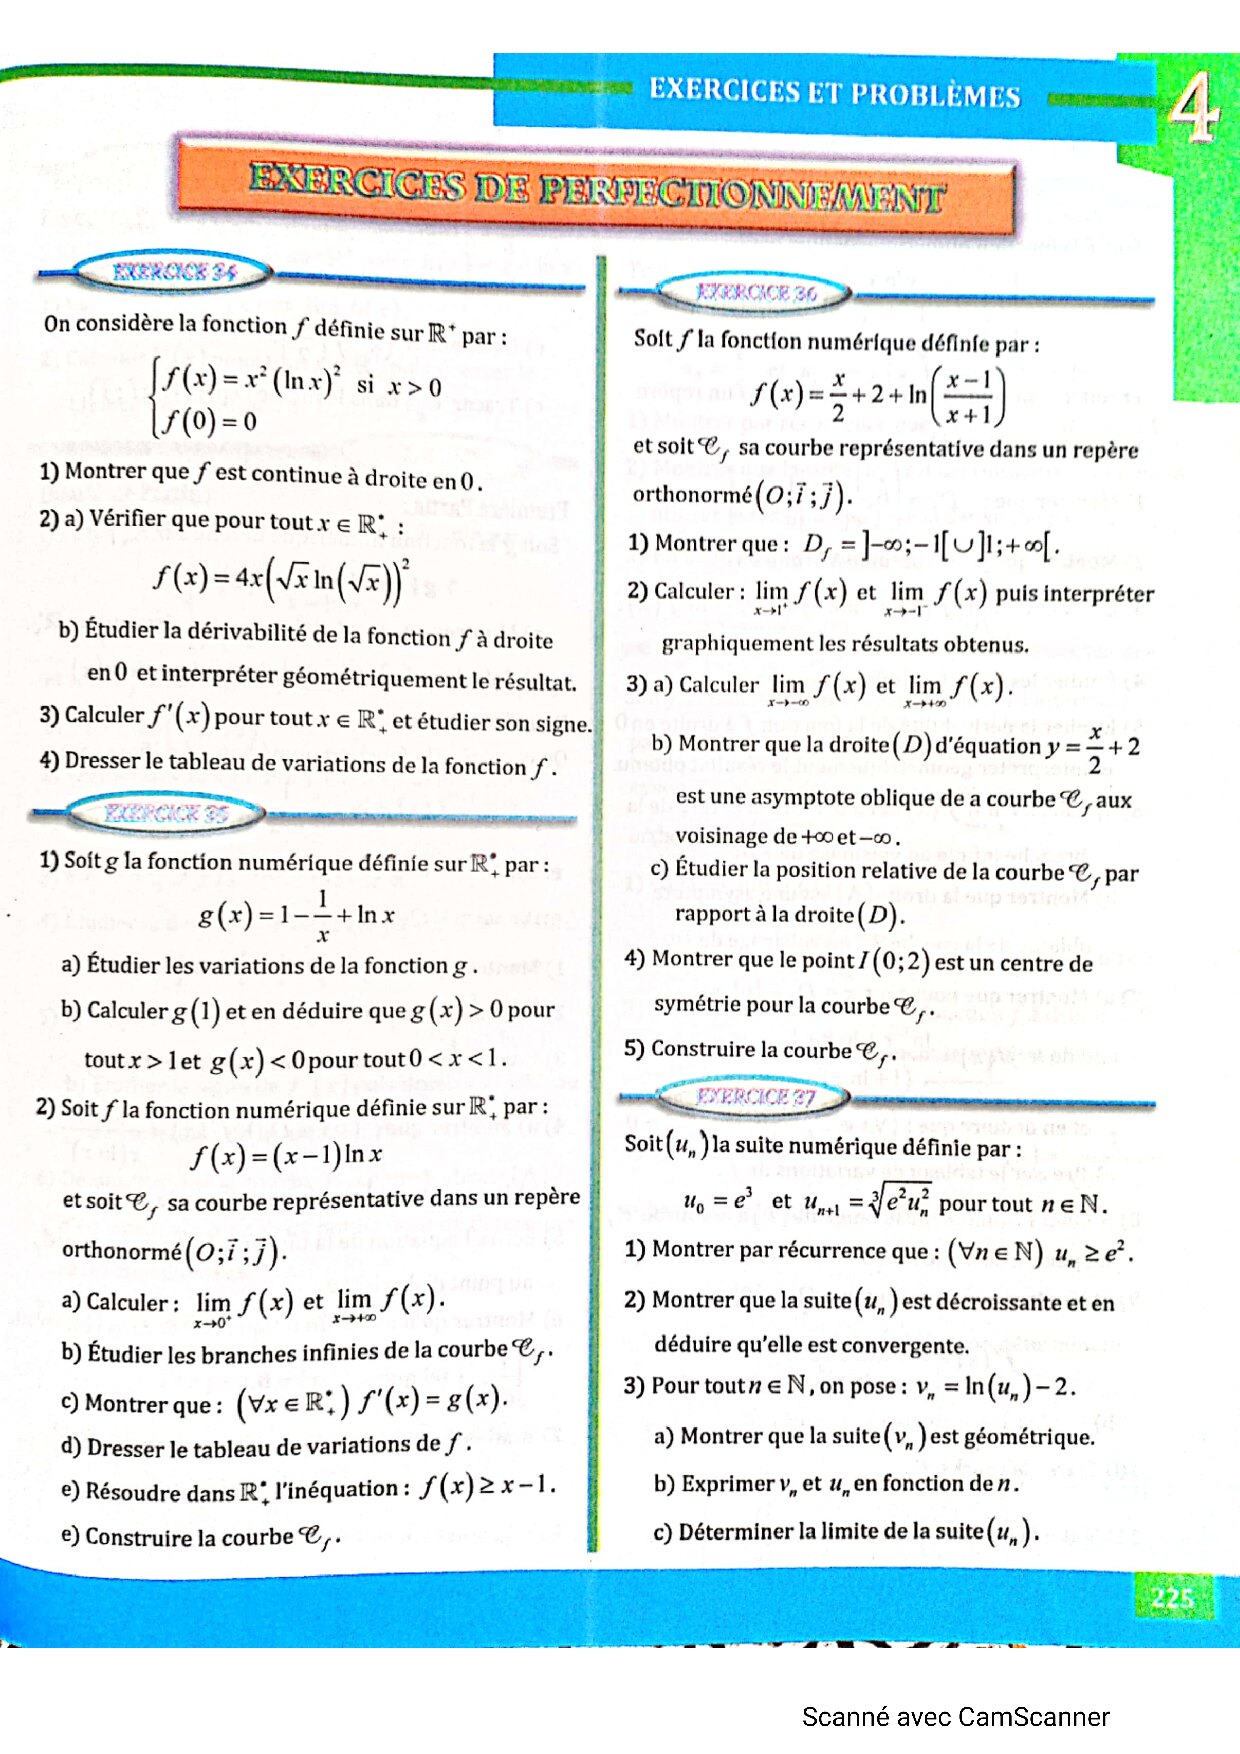 EXERCICES ET PROBLÈMES
4
EXERCICES DE PERFECTIONNEMENT
EXERCICE 34
On considère la fonction f définie sur ℝ⁺ par :
{ f(x) = x² (ln x)² si x > 0
f(0) = 0
1) Montrer que f est continue à droite en 0.
2) a) Vérifier que pour tout x ∈ ℝ₊* :
f(x) = 4x(√x ln(√x))²
b) Étudier la dérivabilité de la fonction f à droite
en 0 et interpréter géométriquement le résultat.
3) Calculer f'(x) pour tout x ∈ ℝ₊* et étudier son signe.
4) Dresser le tableau de variations de la fonction f.
EXERCICE 35
1) Soit g la fonction numérique définie sur ℝ₊* par :
g(x) = 1 - 1/x + ln x
a) Étudier les variations de la fonction g.
b) Calculer g(1) et en déduire que g(x) > 0 pour
tout x > 1 et g(x) < 0 pour tout 0 < x < 1.
2) Soit f la fonction numérique définie sur ℝ₊* par :
f(x) = (x - 1) ln x
et soit 𝒞f sa courbe représentative dans un repère
orthonormé (O; i⃗; j⃗).
a) Calculer : lim x→0⁺ f(x) et lim x→+∞ f(x).
b) Étudier les branches infinies de la courbe 𝒞f.
c) Montrer que : (∀x ∈ ℝ₊*) f'(x) = g(x).
d) Dresser le tableau de variations de f.
e) Résoudre dans ℝ₊* l'inéquation : f(x) ≥ x - 1.
e) Construire la courbe 𝒞f.
EXERCICE 36
Soit f la fonction numérique définie par :
f(x) = x/2 + 2 + ln((x - 1)/(x + 1))
et soit 𝒞f sa courbe représentative dans un repère
orthonormé (O; i⃗; j⃗).
1) Montrer que : Df = ]-∞; -1[ ∪ ]1; +∞[.
2) Calculer : lim x→1⁺ f(x) et lim x→-1⁻ f(x) puis interpréter
graphiquement les résultats obtenus.
3) a) Calculer lim x→-∞ f(x) et lim x→+∞ f(x).
b) Montrer que la droite (D) d'équation y = x/2 + 2
est une asymptote oblique de a courbe 𝒞f aux
voisinage de +∞ et -∞.
c) Étudier la position relative de la courbe 𝒞f par
rapport à la droite (D).
4) Montrer que le point I(0;2) est un centre de
symétrie pour la courbe 𝒞f.
5) Construire la courbe 𝒞f.
EXERCICE 37
Soit (uₙ) la suite numérique définie par :
u₀ = e³ et uₙ₊₁ = ∛(e²uₙ²) pour tout n ∈ ℕ.
1) Montrer par récurrence que : (∀n ∈ ℕ) uₙ ≥ e².
2) Montrer que la suite (uₙ) est décroissante et en
déduire qu'elle est convergente.
3) Pour tout n ∈ ℕ, on pose : vₙ = ln(uₙ) - 2.
a) Montrer que la suite (vₙ) est géométrique.
b) Exprimer vₙ et uₙ en fonction de n.
c) Déterminer la limite de la suite (uₙ).
225
Scanné avec CamScanner